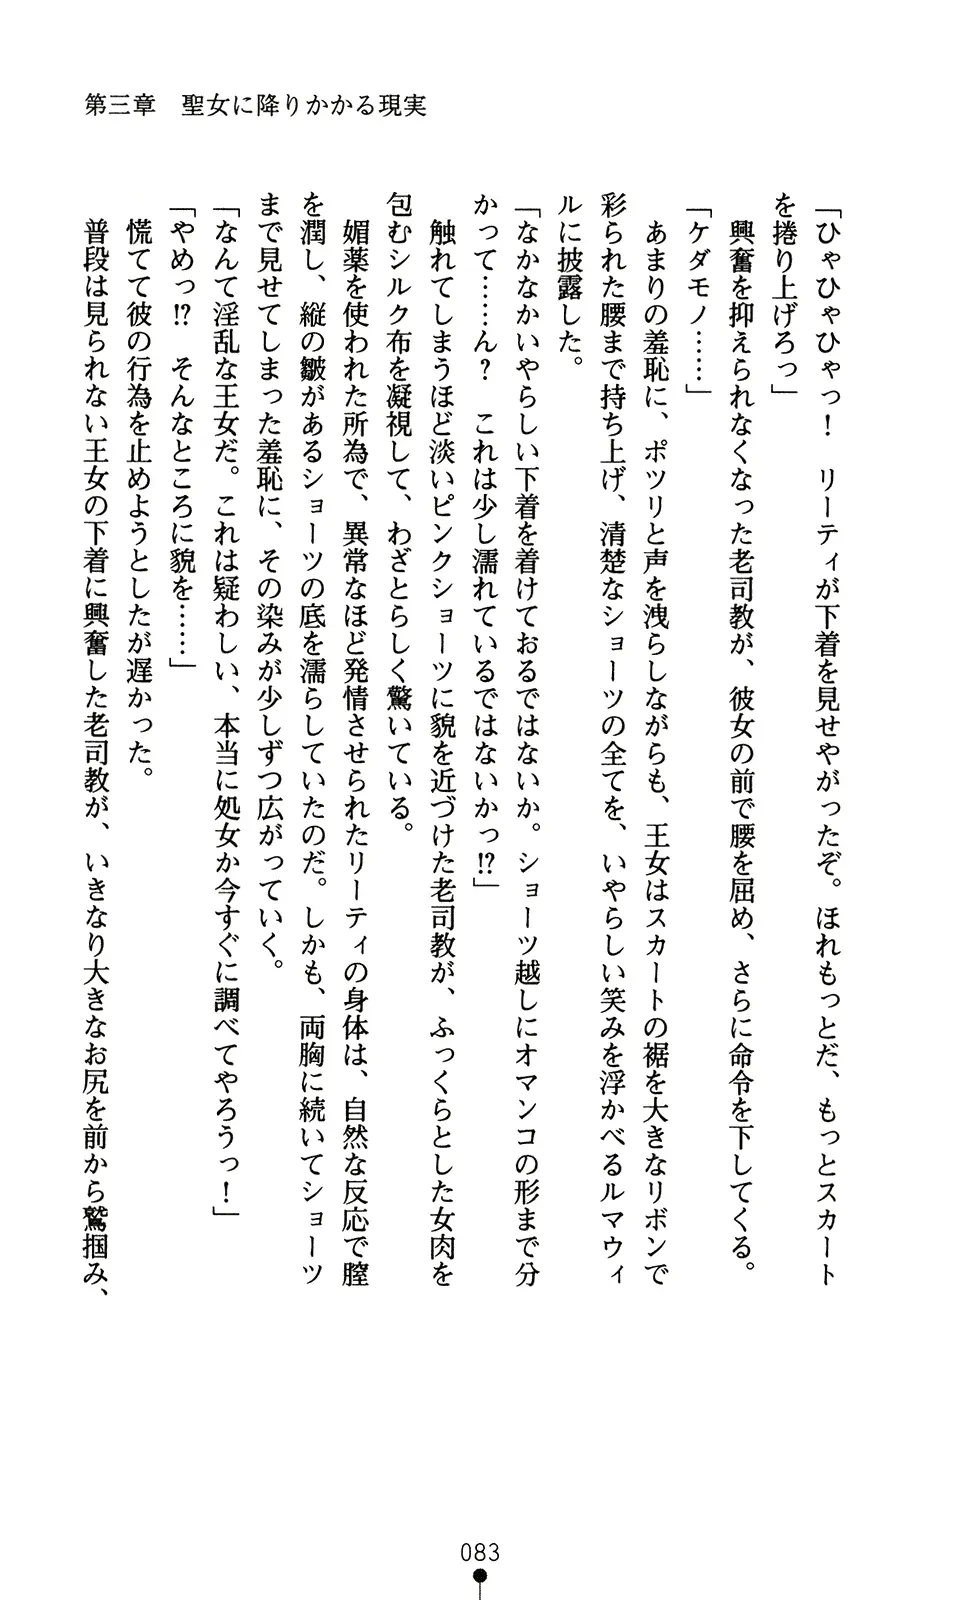 第三章　聖女に降りかかる現実
「ひゃひゃひゃっ！　リーティが下着を見せやがったぞ。ほれもっとだ、もっとスカート
を捲り上げろっ」
　興奮を抑えられなくなった老司教が、彼女の前で腰を屈め、さらに命令を下してくる。
「ケダモノ……」
　あまりの羞恥に、ポツリと声を洩らしながらも、王女はスカートの裾を大きなリボンで
彩られた腰まで持ち上げ、清楚なショーツの全てを、いやらしい笑みを浮かべるルマウィ
ルに披露した。
「なかなかいやらしい下着を着けておるではないか。ショーツ越しにオマンコの形まで分
かって……ん？　これは少し濡れているではないかっ!?」
　触れてしまうほど淡いピンクショーツに貌を近づけた老司教が、ふっくらとした女肉を
包むシルク布を凝視して、わざとらしく驚いている。
　媚薬を使われた所為で、異常なほど発情させられたリーティの身体は、自然な反応で膣
を潤し、縦の皺があるショーツの底を濡らしていたのだ。しかも、両胸に続いてショーツ
まで見せてしまった羞恥に、その染みが少しずつ広がっていく。
「なんて淫乱な王女だ。これは疑わしい、本当に処女か今すぐに調べてやろうっ！」
「やめっ!?　そんなところに貌を……」
　慌てて彼の行為を止めようとしたが遅かった。
　普段は見られない王女の下着に興奮した老司教が、いきなり大きなお尻を前から鷲掴み、
083